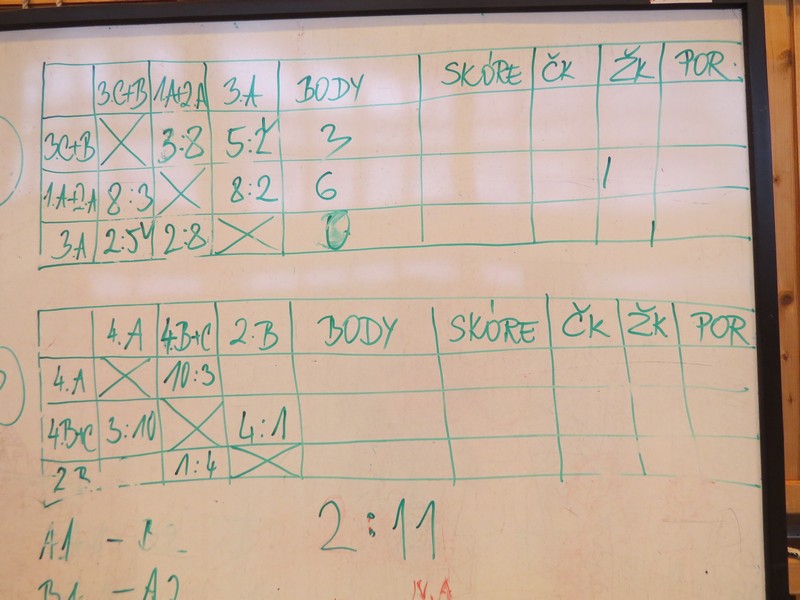 3.C+B 1.A+2.A 3.A BODY SKÓRE ČK ŽK POR.
3C+B 3:8 5:2 3
1.A+2.A 8:3 8:2 6 /
3.A 2:5 2:8 0
4.A 4.B+C 2.B BODY SKÓRE ČK ŽK POR
4.A 10:3
4.B+C 3:10 4:1
2.B 1:4
A1 –
2:11
B1 – A2